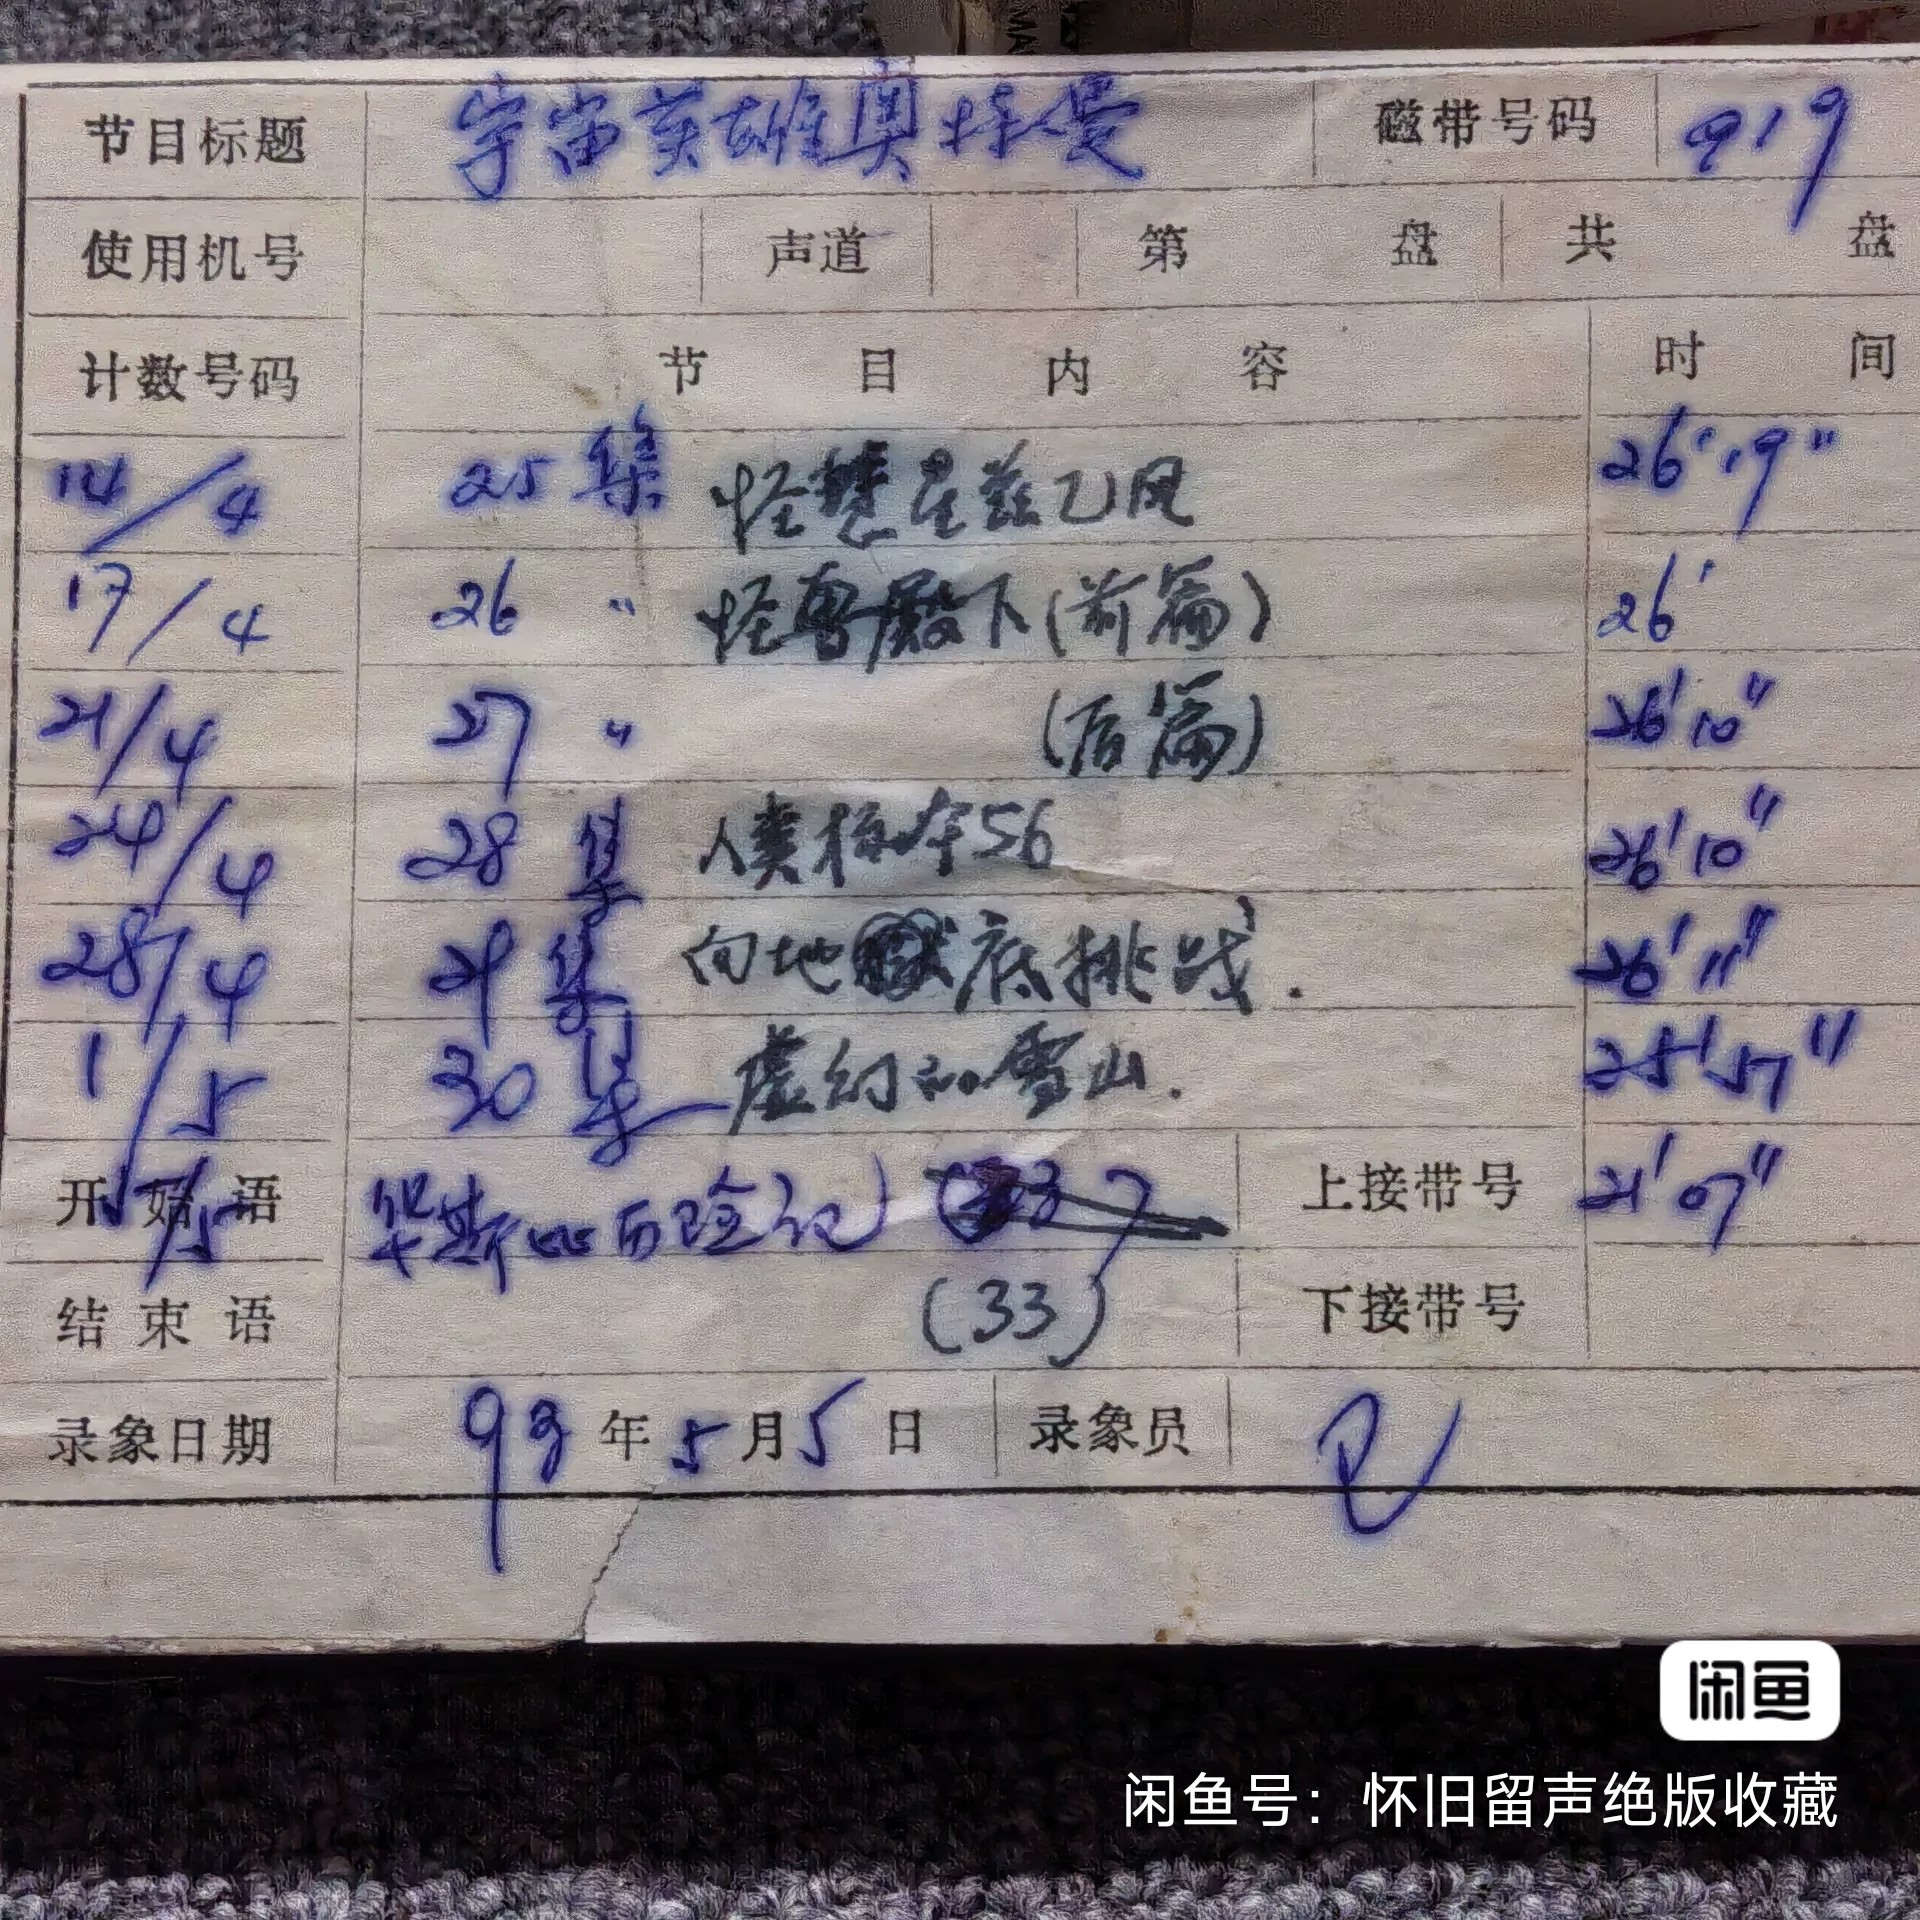 节目标题 宇宙英雄奥特曼 磁带号码 919
使用机号 声道 第 盘 共 盘
计数号码 节目内容 时间
14/4 25集 怪彗星兹乙风 26'19"
17/4 26 〃 怪兽殿下(前篇) 26'
21/4 27 〃 (后篇) 26'10"
24/4 28集 人类标本56 26'10"
28/4 29集 向地底挑战. 26'11"
1/5 30集 虚幻的雪山. 25'57"
开始语 5/5 华斯比历险记 上接带号 21'07"
结束语 (33) 下接带号
录象日期 93年5月5日 录象员
闲鱼
闲鱼号：怀旧留声绝版收藏